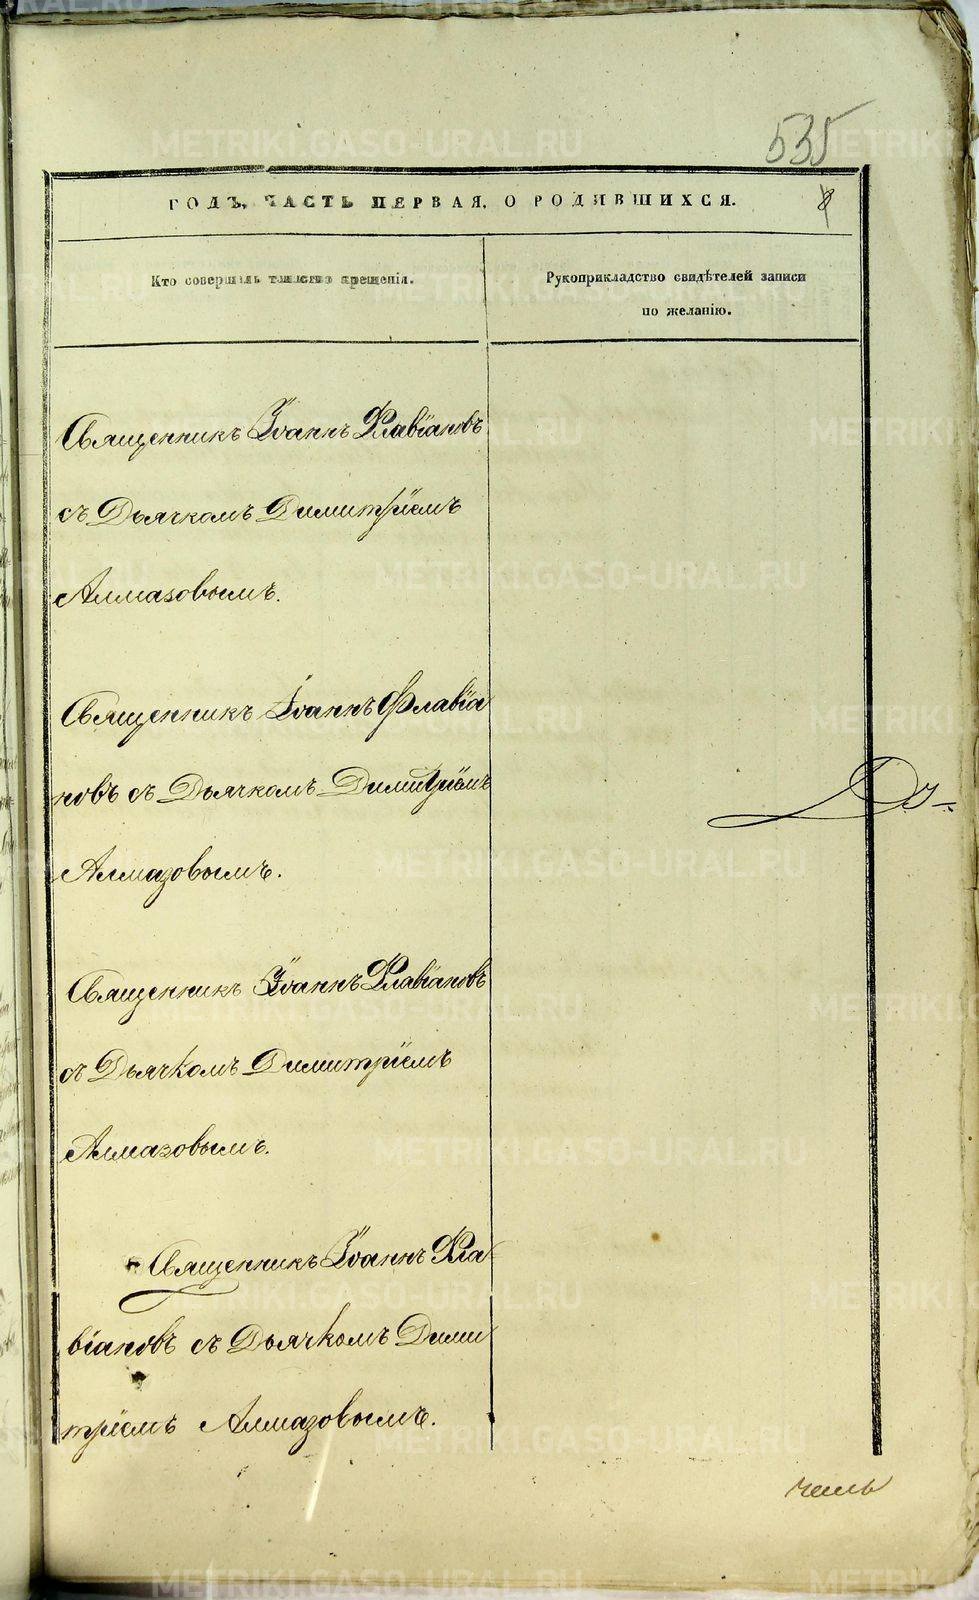 535
ГОДЪ, ЧАСТЬ ПЕРВАЯ, О РОДИВШИХСЯ.
Кто совершалъ таинство крещенія.
Рукоприкладство свидѣтелей записи
по желанію.
Священникъ Іоаннъ Флавіановъ
съ Дьячкомъ Димитріемъ
Алмазовымъ.
Священникъ Іоаннъ Флавіа
новъ съ Дьячкомъ Димитріемъ
Алмазовымъ.
Священникъ Іоаннъ Флавіановъ
съ Дьячкомъ Димитріемъ
Алмазовымъ.
Священникъ Іоаннъ Фла
віановъ съ Дьячкомъ Дими
тріемъ Алмазовымъ.
METRIKI.GASO-URAL.RU